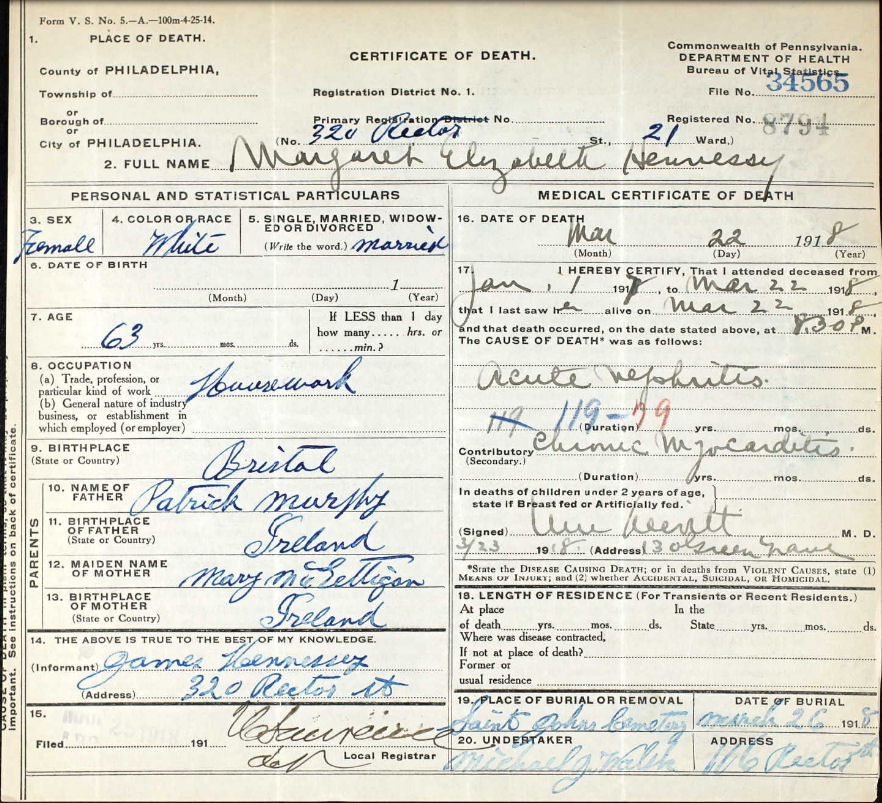 Form V. S. No. 5.—A.—100m-4-25-14.
1. PLACE OF DEATH.
County of PHILADELPHIA,
Township of
or
Borough of
or
City of PHILADELPHIA.
CERTIFICATE OF DEATH.
Registration District No. 1.
Primary Registration District No.
(No. 320 Rector St., 21 Ward.)
Commonwealth of Pennsylvania.
DEPARTMENT OF HEALTH
Bureau of Vital Statistics
File No. 34565
Registered No. 8794
2. FULL NAME Margaret Elizabeth Hennessy
PERSONAL AND STATISTICAL PARTICULARS
3. SEX
Female
4. COLOR OR RACE
White
5. SINGLE, MARRIED, WIDOW-
ED OR DIVORCED
(Write the word.) married
6. DATE OF BIRTH
1
(Month) (Day) (Year)
7. AGE
63 yrs. mos. ds.
If LESS than 1 day
how many...... hrs. or
......min.?
8. OCCUPATION
(a) Trade, profession, or
particular kind of work Housework
(b) General nature of industry
business, or establishment in
which employed (or employer)
9. BIRTHPLACE
(State or Country) Bristol
PARENTS
10. NAME OF
FATHER Patrick Murphy
11. BIRTHPLACE
OF FATHER
(State or Country) Ireland
12. MAIDEN NAME
OF MOTHER Mary McGettigan
13. BIRTHPLACE
OF MOTHER
(State or Country) Ireland
14. THE ABOVE IS TRUE TO THE BEST OF MY KNOWLEDGE.
(Informant) James Hennessey
(Address) 320 Rector st
15.
Filed 191
Local Registrar
MEDICAL CERTIFICATE OF DEATH
16. DATE OF DEATH
Mar 22 1918
(Month) (Day) (Year)
17. I HEREBY CERTIFY, That I attended deceased from
Jan, 1 1918, to Mar 22 1918,
that I last saw her alive on Mar 22 1918,
and that death occurred, on the date stated above, at 8.30 P M.
The CAUSE OF DEATH* was as follows:
Acute Nephritis.
119 119-79
(Duration) yrs. mos. ds.
Contributory Chronic Myocarditis.
(Secondary.)
(Duration) yrs. mos. ds.
In deaths of children under 2 years of age,
state if Breast fed or Artificially fed.
(Signed) M. D.
3/23 1918. (Address) Green Lane
*State the DISEASE CAUSING DEATH; or in deaths from VIOLENT CAUSES, state (1)
MEANS OF INJURY; and (2) whether ACCIDENTAL, SUICIDAL, OR HOMICIDAL.
18. LENGTH OF RESIDENCE (For Transients or Recent Residents.)
At place In the
of death yrs. mos. ds. State yrs. mos. ds.
Where was disease contracted,
If not at place of death?
Former or
usual residence
19. PLACE OF BURIAL OR REMOVAL
Saint Johns Cemetery
DATE OF BURIAL
march 26 1918
20. UNDERTAKER
Michael J. Walsh
ADDRESS
Rector st
important. See instructions on back of certificate.